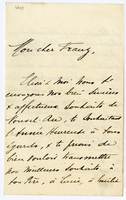 Mon cher Franz,
Elisa & moi nous
envoyons nos bien sincères
& affectueux souhaits de
Nouvel An, te souhaitant
l'année heureuse à tous
égards, & te prions de
bien vouloir transmettre
nos meilleurs souhaits à
ton Père, à Lucie, à Emilie